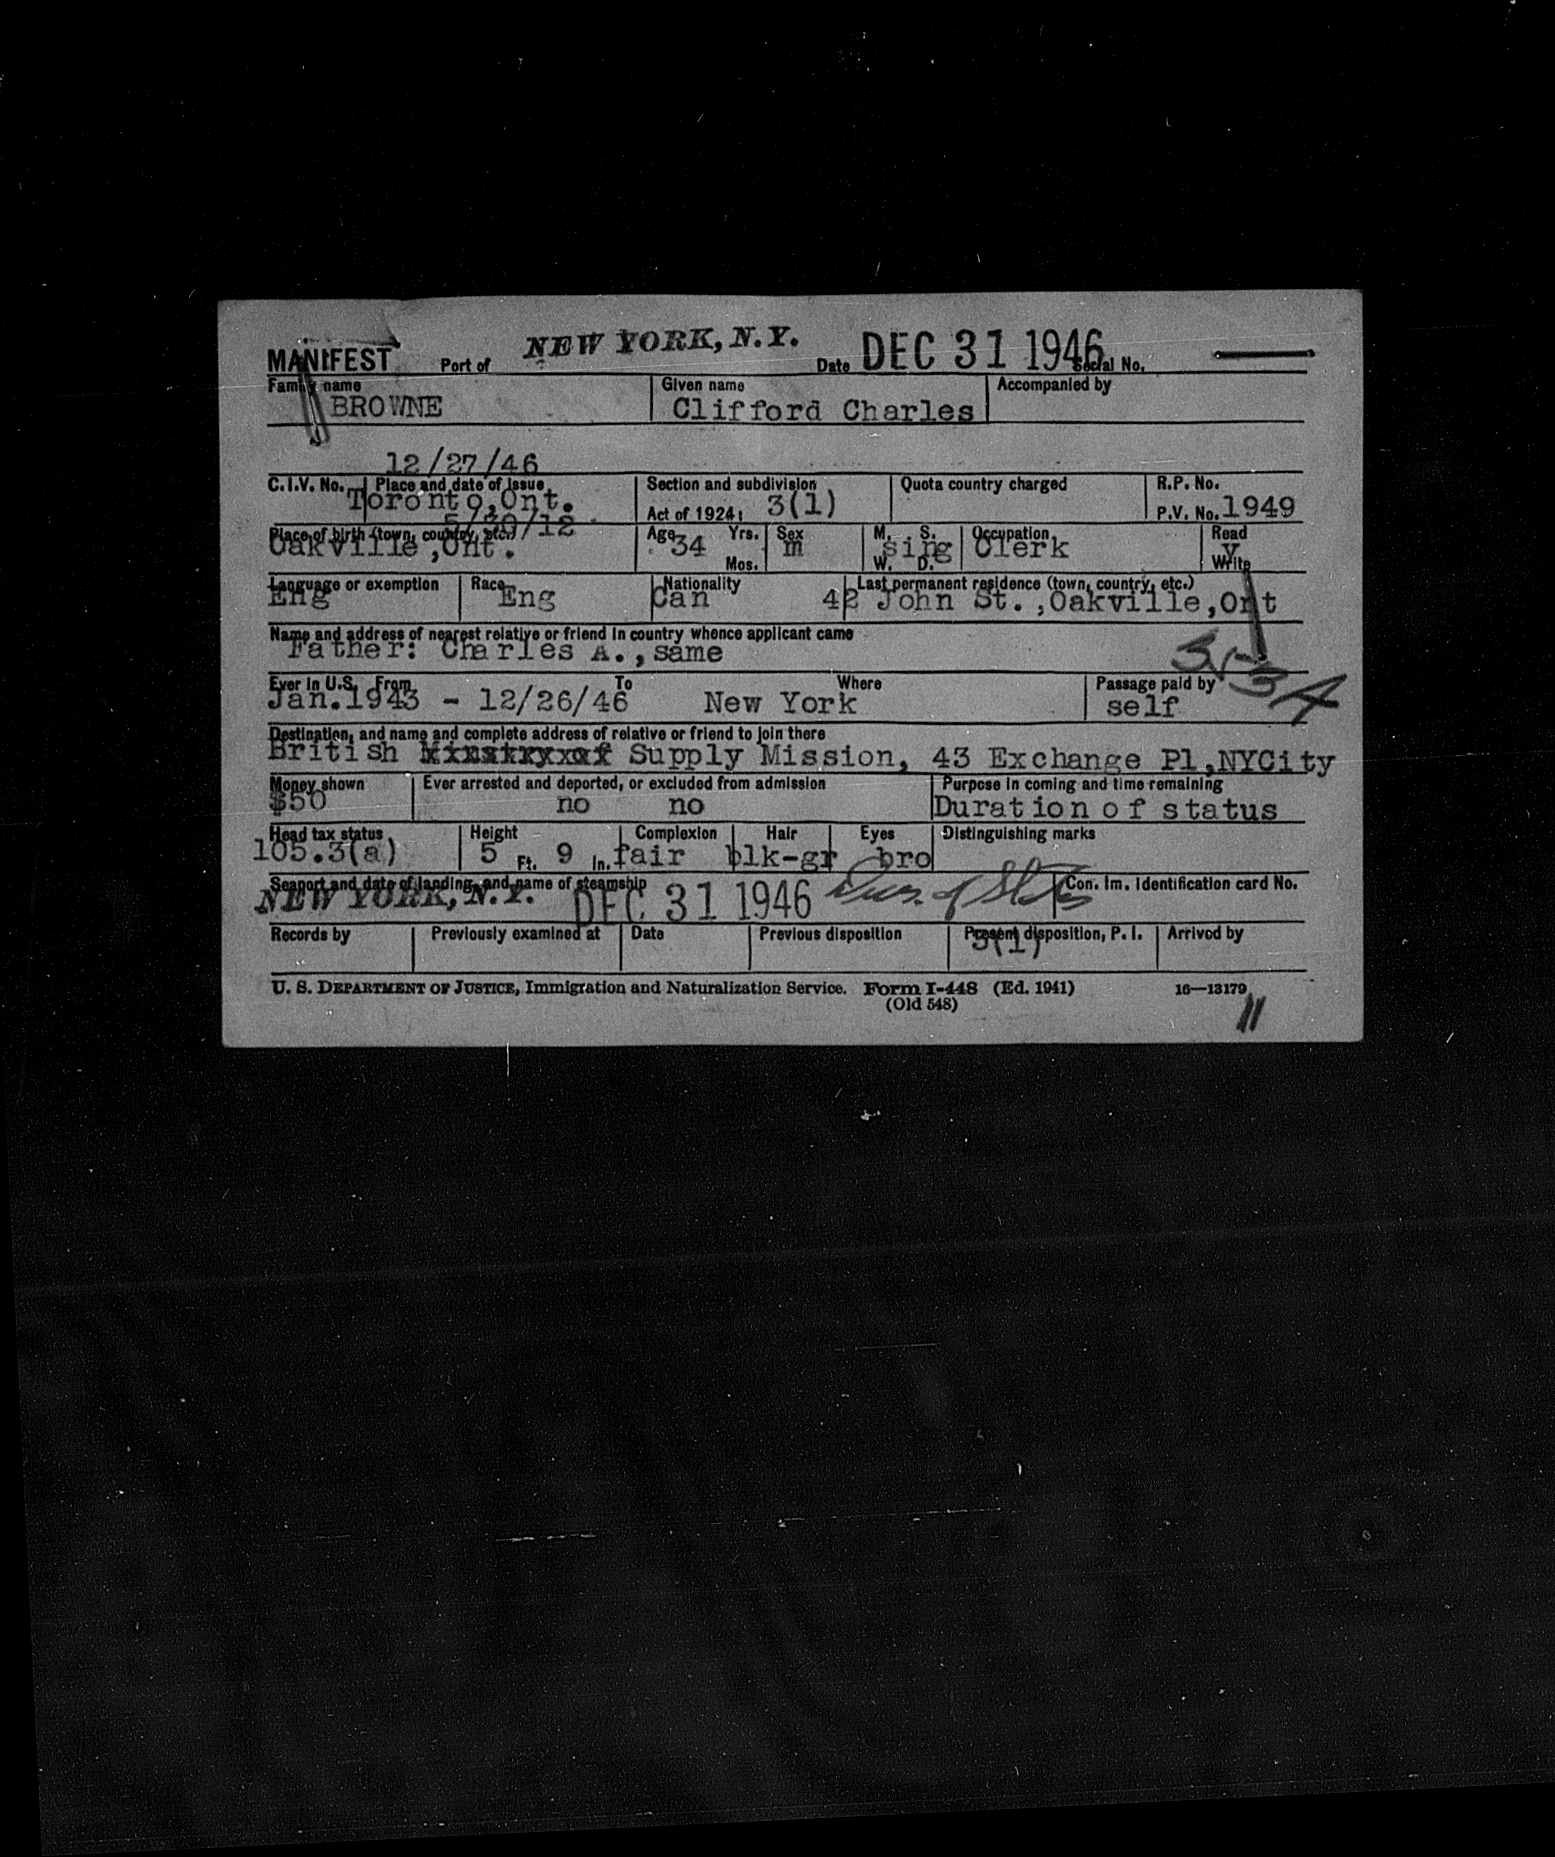 MANIFEST Port of NEW YORK, N.Y. Date DEC 31 1946 Serial No.
Family name Given name Accompanied by
BROWNE Clifford Charles
12/27/46
C.I.V. No. Place and date of issue Section and subdivision Quota country charged R.P. No.
Toronto,Ont. Act of 1924: 3(1) P.V. No. 1949
5/30/12
Place of birth (town, country, etc.) Age Yrs. Sex M. S. Occupation Read
Oakville,Ont. 34 m sing Clerk y
Mos. W. D. Write
Language or exemption Race Nationality Last permanent residence (town, country, etc.)
Eng Eng Can 42 John St.,Oakville,Ont
Name and address of nearest relative or friend in country whence applicant came
Father: Charles A.,same
Ever in U.S. From To Where Passage paid by
Jan.1943 - 12/26/46 New York self
Destination, and name and complete address of relative or friend to join there
British Supply Mission, 43 Exchange Pl,NYCity
Money shown Ever arrested and deported, or excluded from admission Purpose in coming and time remaining
$50 no no Duration of status
Head tax status Height Complexion Hair Eyes Distinguishing marks
105.3(a) 5 Ft. 9 In. fair blk-gr bro
Seaport and date of landing, and name of steamship Con. Im. Identification card No.
NEW YORK, N.Y. DEC 31 1946 Dur. of Status
Records by Previously examined at Date Previous disposition Present disposition, P. I. Arrived by
3(1)
U. S. DEPARTMENT OF JUSTICE, Immigration and Naturalization Service. Form I-448 (Ed. 1941) 16—13179
(Old 548)
11